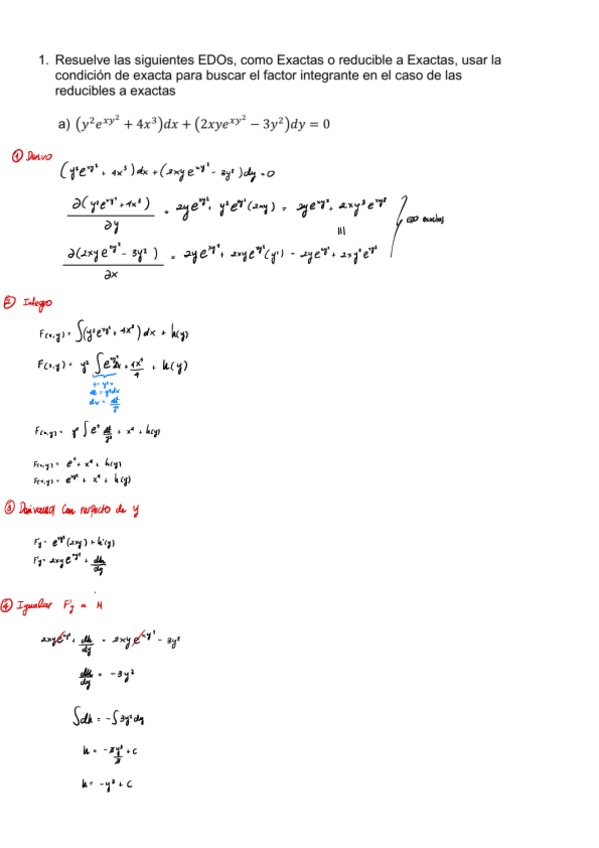 1. Resuelve las siguientes EDOs, como Exactas o reducible a Exactas, usar la
condición de exacta para buscar el factor integrante en el caso de las
reducibles a exactas
a) (y²e^{xy²} + 4x³)dx + (2xye^{xy²} − 3y²)dy = 0
① Derivo
(y²e^{xy²} + 4x³)dx + (2xye^{xy²} - 3y²)dy = 0
∂(y²e^{xy²} + 4x³)/∂y = 2ye^{xy²} + y²e^{xy²}(2xy) = 2ye^{xy²} + 2xy³e^{xy²}
||| EDO exactas
∂(2xye^{xy²} - 3y²)/∂x = 2ye^{xy²} + 2xye^{xy²}(y²) = 2ye^{xy²} + 2xy³e^{xy²}
② Integro
F(x,y) = ∫(y²e^{xy²} + 4x³)dx + h(y)
F(x,y) = y² ∫e^{xy²}dx + 4x⁴/4 + h(y)
t = y²x
dt = y²dx
dx = dt/y²
F(x,y) = y² ∫e^t dt/y² + x⁴ + h(y)
F(x,y) = e^t + x⁴ + h(y)
F(x,y) = e^{xy²} + x⁴ + h(y)
③ Derivamos con respecto de y
F'y = e^{xy²}(2xy) + h'(y)
F'y = 2xye^{xy²} + dh/dy
④ Igualar F'y = N
2xye^{xy²} + dh/dy = 2xye^{xy²} - 3y²
dh/dy = -3y²
∫dh = -∫3y²dy
h = -3y³/3 + c
h = -y³ + C